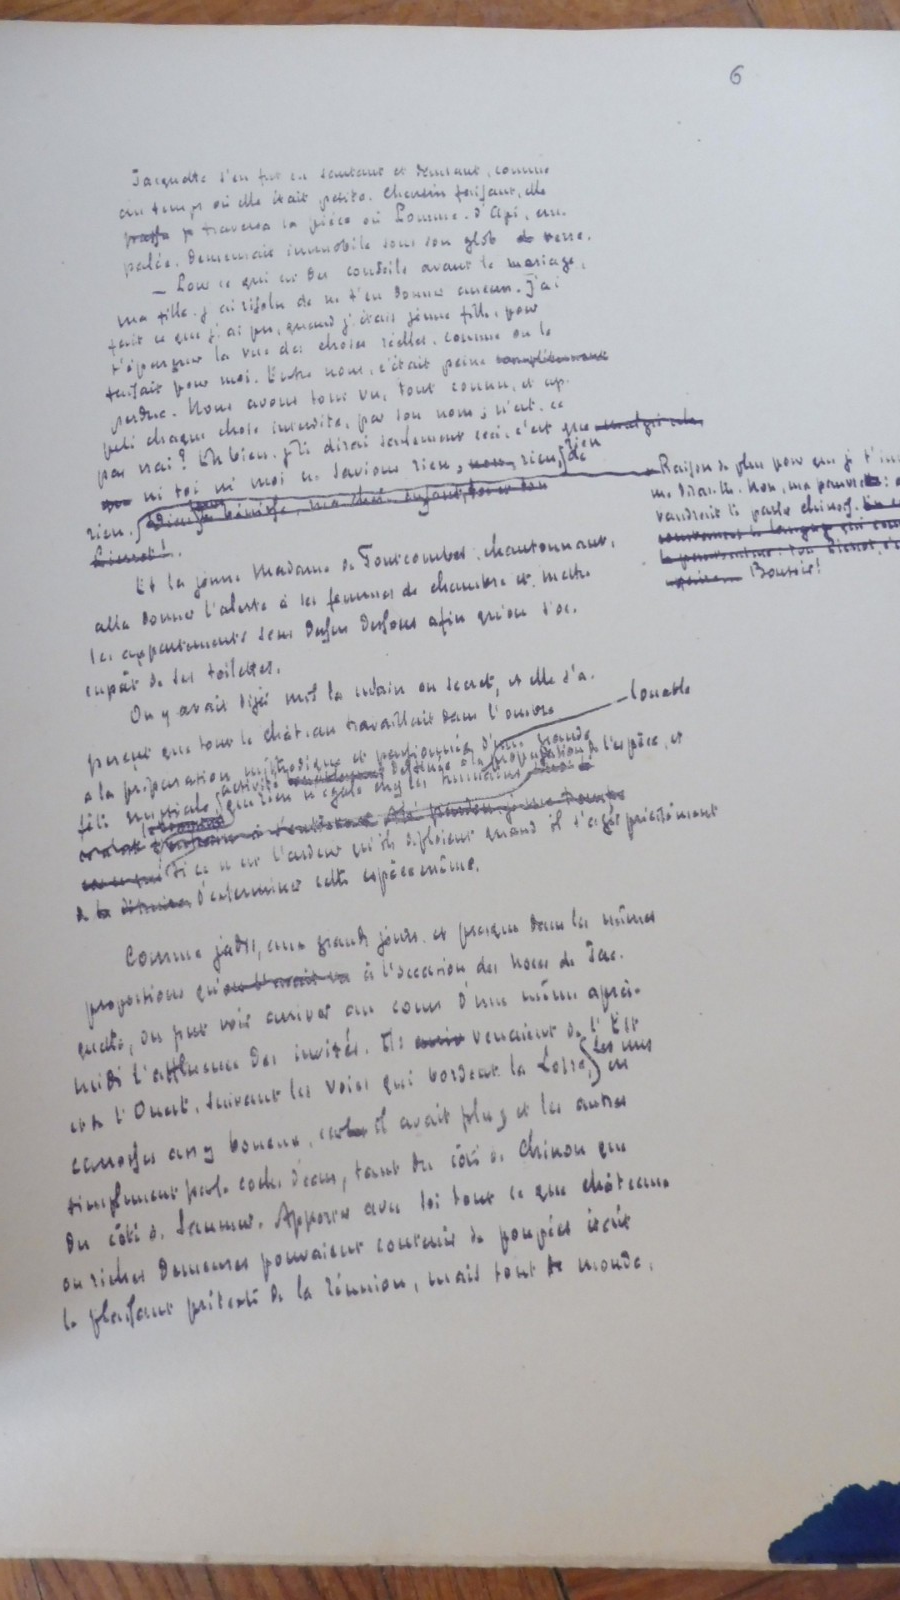 6
Jacquette s'en fut en sautant et dansant, comme
au temps où elle était petite. Chemin faisant, elle
traversa la pièce où Pomme-d'Api, em-
palée, demeurait immobile sous son globe de verre.
— Pour ce qui est des conseils avant le mariage,
ma fille, j'ai résolu de ne t'en donner aucun. J'ai
fait ce que j'ai pu, quand j'étais jeune fille, pour
t'épargner la vue des choses réelles, comme on le
faisait pour moi. Entre nous, c'était peine complètement
perdue. Nous avons tout vu, tout connu, et ap-
pelé chaque chose interdite, par son nom; n'est-ce
pas vrai? Eh bien, je te dirai seulement ceci: c'est que malgré cela,
ni toi ni moi ne savions rien, non, rien, de rien
rien. Dieu te bénisse, ma chère enfant, toi et ton
Pierrot!
Raison de plus pour que je t'in
me disait-elle. Non, ma pauvre
vaudrait te parler chinois.
Bonsoir!
Et la jeune Madame de Fourcombes, chantonnant,
alla donner l'alerte à ses femmes de chambre et mettre
les appartements sens dessus dessous afin qu'on s'oc-
cupât de ses toilettes.
On y avait déjà mis la main en secret, et elle s'a-
perçut que tout le château travaillait dans l'ombre
louable
à la préparation méthodique et passionnée d'une grande
fête nuptiale, activité destinée à la propagation de l'espèce, et
que rien n'égale chez les humains
si ce n'est l'ardeur qu'ils déploient quand il s'agit précisément
d'exterminer cette espèce même.
Comme jadis, aux grands jours, et presque dans les mêmes
proportions qu'on l'avait vu à l'occasion des noces de Jac-
quette, on put voir arriver au cours d'une même après-
midi l'affluence des invités. Ils venaient de l'Est
et de l'Ouest, suivant les voies qui bordent la Loire, les uns
en
carrosses assez boueux, car il avait plu, et les autres
simplement par le coche d'eau, tant du côté de Chinon que
du côté de Saumur. Apporter avec soi tout ce que châteaux
ou riches demeures pouvaient contenir de poupées était
le plaisant prétexte de la réunion, mais tout le monde,